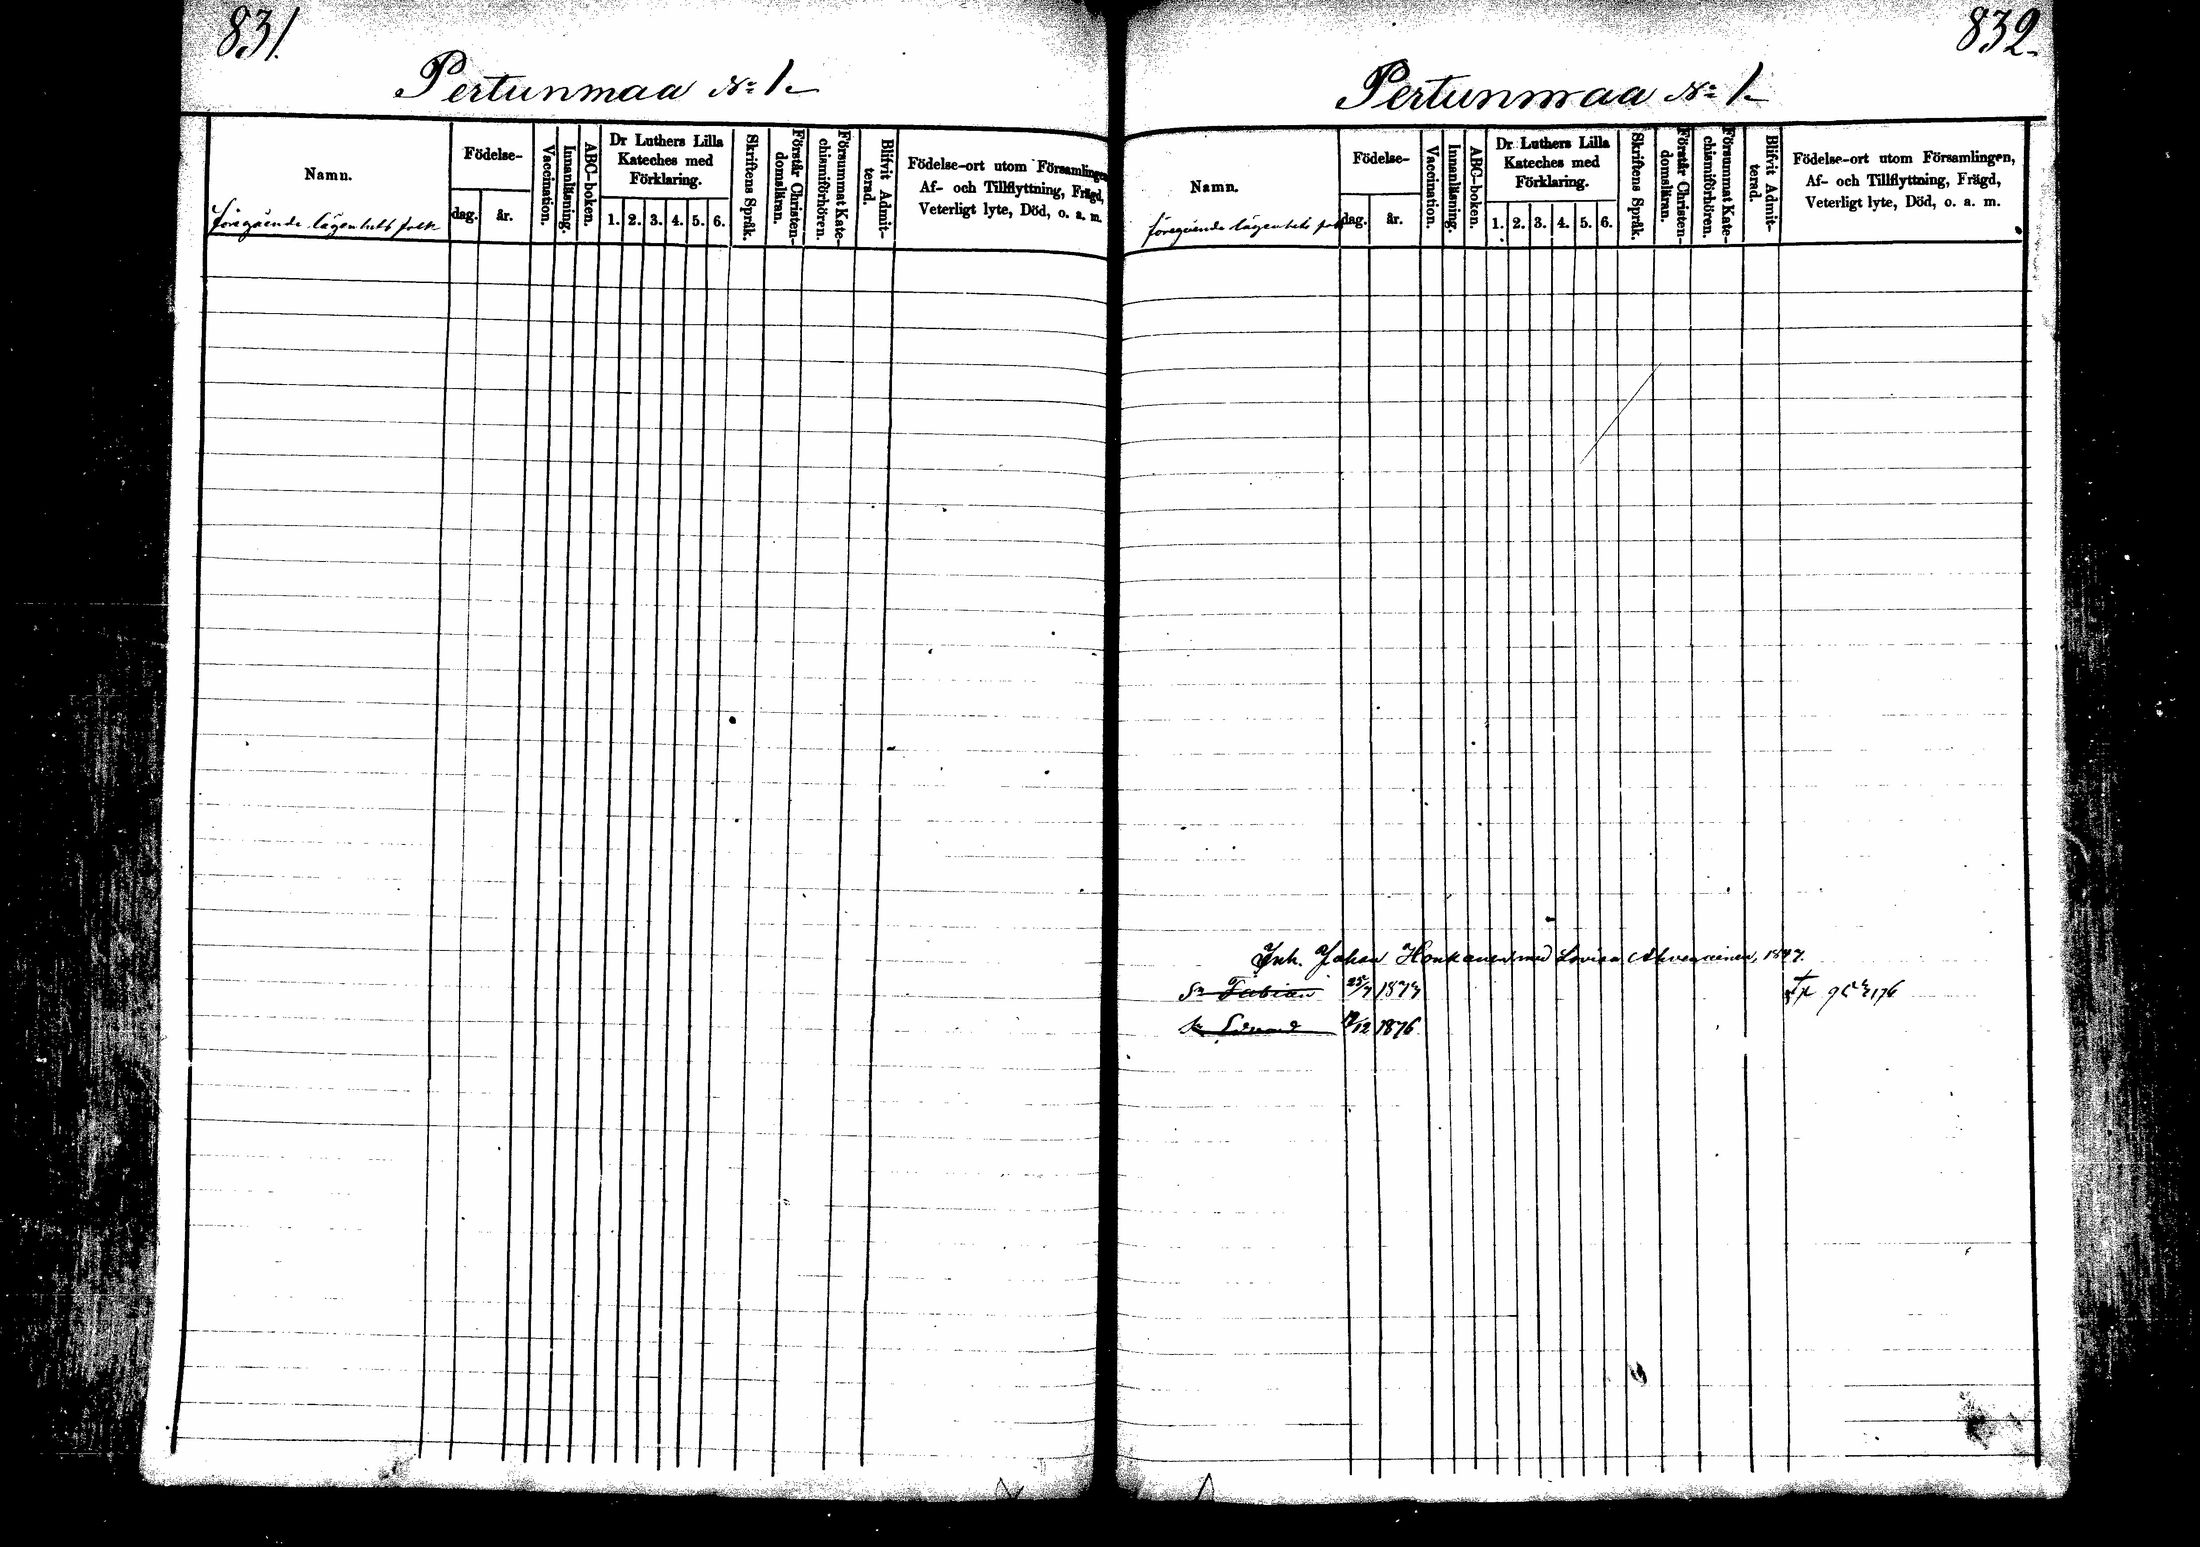 831.
Pertunmaa No 1.
Namn.
föregående lägenhets folk
Födelse-
dag.
år.
Vaccination.
Innanläsning.
ABC-boken.
Dr Luthers Lilla
Kateches med
Förklaring.
1. 2. 3. 4. 5. 6.
Skriftens Språk.
Förstår Christen-
domsläran.
Försummat Kate-
chismiförhören.
Blifvit Admit-
terad.
Födelse-ort utom Församlingen,
Af- och Tillflyttning, Frägd,
Veterligt lyte, Död, o. a. m.
832.
Pertunmaa No 1.
Namn.
föregående lägenhets folk
Födelse-
dag.
år.
Vaccination.
Innanläsning.
ABC-boken.
Dr Luthers Lilla
Kateches med
Förklaring.
1. 2. 3. 4. 5. 6.
Skriftens Språk.
Förstår Christen-
domsläran.
Försummat Kate-
chismiförhören.
Blifvit Admit-
terad.
Födelse-ort utom Församlingen,
Af- och Tillflyttning, Frägd,
Veterligt lyte, Död, o. a. m.
Inh. Johan Honkanen med Lovisa Ahvenainen, 1847.
Sn Fabian 25/7 1873
Sn Edvard 12 1876